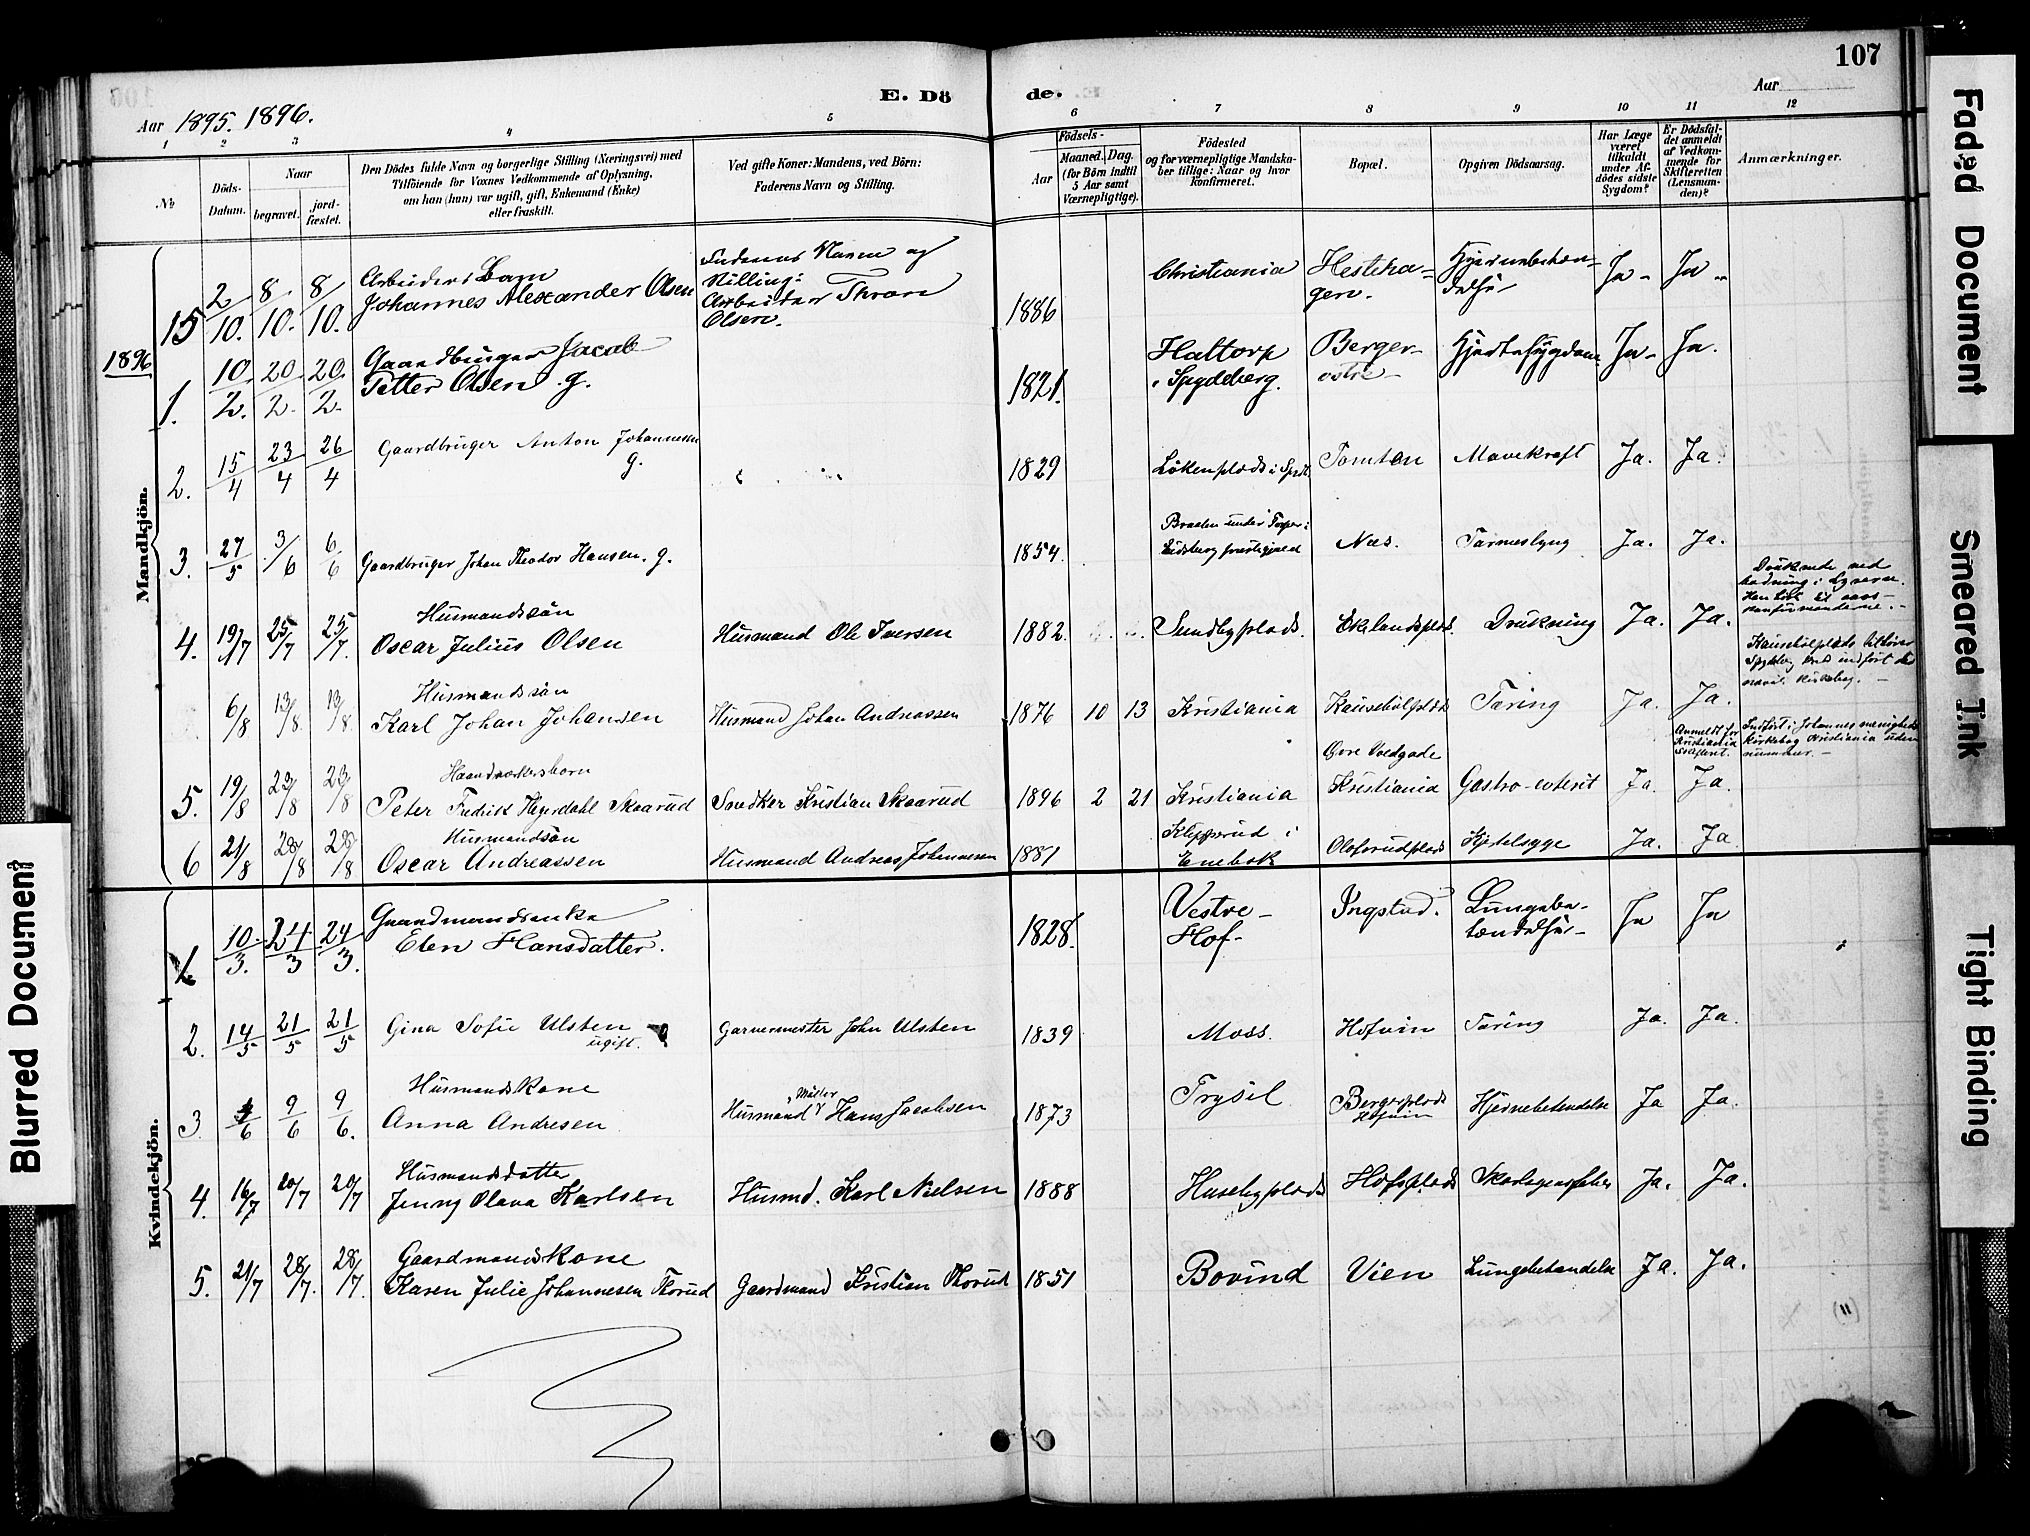 107
E. Dö de.
Aar 1895. 1896.
Aar
1 2 3 4 5 6 7 8 9 10 11 12
№
Döds-Datum.
Naar
begravet.
jord-fæstet.
Den Dödes fulde Navn og borgerlige Stilling (Næringsvei) med
Tilföiende for Voxnes Vedkommende af Oplysning,
om han (hun) var ugift, gift, Enkemand (Enke)
eller fraskilt.
Ved gifte Koner: Mandens, ved Börn:
Faderens Navn og Stilling.
Födsels-
Aar
Maaned. Dag.
(for Börn indtil
5 Aar samt
Værnepligtige).
Födested
og for værnepligtige Mandska-
ber tillige: Naar og hvor
konfirmeret.
Bopæl.
Opgiven Dödsaarsag.
Har Læge
været
tilkaldt
under Af-
dödes sidste
Sygdom?
Er Dödsfal-
det anmeldt
af Vedkom-
mende for
Skifteretten
(Lensman-
den)?
Anmærkninger.
Mandkjön.
15 2/10. 8/10. 8/10. Arbeiders Barn
Johannes Alexander Olsen
Faderens Navn og
Stilling:
Arbeider Thron
Olsen.
1886 Christiania Hesteha-
gen. Ja- Ja-
1896
1. 10/2. 20/2. 20/2. Gaardbruger Jacob
Petter Olsen g. 1821. Haltorp
i Spydeberg. Berger
østre Hjertesygdom Ja- Ja.
2. 15/4 23/4 26/4 Gaardbruger Anton Johannesen
g. 1829 Lökenplads i Spdb. Tomten Mavekræft Ja. Ja.
3. 27/5 3/6 6/6 Gaardbruger Johan Theodor Hansen. g. 1854. Braaten under Torper i
Eidsberg prestegjeld Næs. Tarmeslyng Ja. Ja.
4. 19/7 25/7 25/7. Husmandssön
Oscar Julius Olsen Husmand Ole Iversen 1882. Sundbyplads. Eklandsplds. Drukning Ja. Ja.
Druknede ved
badning i Lyseren.
6/8 13/8 13/8. Husmandssön
Karl Johan Johansen Husmand Johan Andreassen 1876 10 13 Kristiania Tæring Ja. Ja.
5. 19/8 23/8 23/8 Haandværkersbarn
Peter Fredrik Heyerdahl Skaarud Snedker Kristian Skaarud 1896 2 21 Kristiania Øvre Voldgade
Kristiania Gastro-enterit Ja. Ja.
Anmeldt for
Kristiania
Skifteret.
Indfört i Johannes menigheds
kirkebog Kristiania uden
nummer.-
6 21/8 28/8 28/8 Husmandsön
Oscar Andreassen Husmand Andreas Johannesen 1881 Klypperud i
Enebak Olaforudplads Kjertelsyge Ja. Ja
Kvindekjön.
1. 10/3. 24/3 24/3. Gaardmandsenke
Elen Hansdatter. 1828. Vestre-
Hof- Ingstad. Lungebe-
tændelse- Ja Ja
2. 14/5 21/5 21/5 Gina Sofie Ulsten
ugift. Garvermester John Ulsten 1839 Moss. Hofvin Tæring Ja. Ja.
3. /6 9/6 9/6. Husmandskone
Anna Andresen Husmand, Møller Hans Jacobsen 1873 Trysil Bergerplads
Hofvin Hjernebetændelse Ja Ja.
4. 16/7 20/7 20/7 Husmandsdatter
Jenny Olava Karlsen Husmd. Karl Nielsen 1888 Husebyplads Hofsplads Skarlagensfeber Ja. Ja.
5. 21/7 28/7. 28/7. Gaardmandskone
Karen Julie Johannesen Thorud Gaardmand Kristian Thorud 1851 Bovind Vien Lungebetændelse Ja. Ja.
Faded Document
Smeared Ink
Tight Binding
Blurred Document